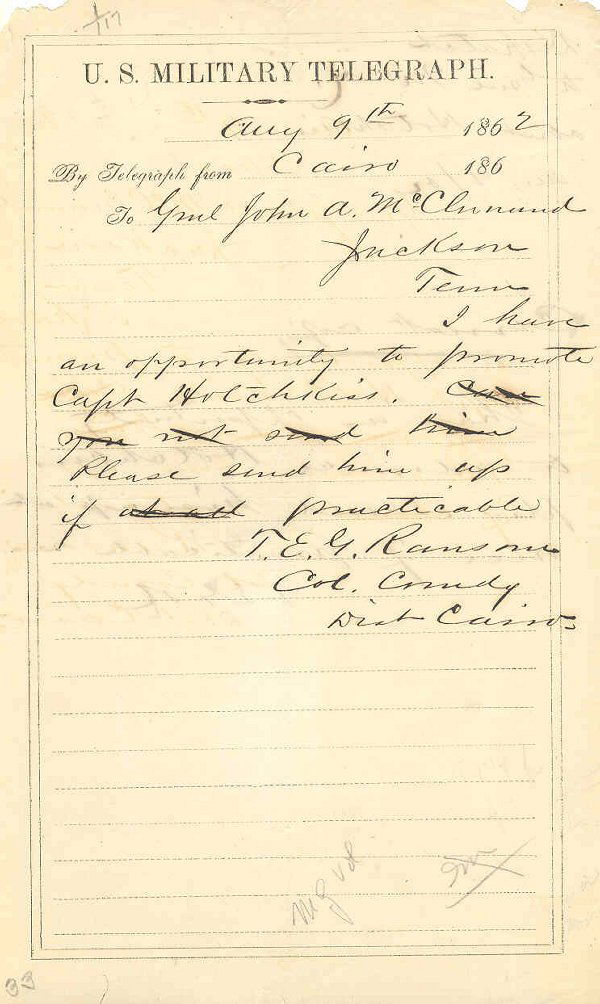 U. S. MILITARY TELEGRAPH.
Aug 9th 1862
By Telegraph from Cairo 186
To Genl John A. McClernand
Jackson
Tenn
I have
an opportunity to promote
Capt Hotchkiss. Can
you not send him
Please send him up
if at all practicable
T. E. G. Ransom
Col. Comdg
Dist Cairo
33